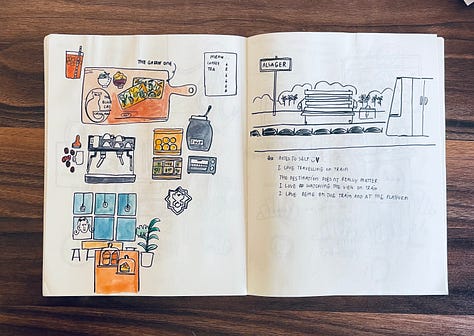 THE GREEN ONE
MENU
COFFEE
TEA
ALSAGER
NOTES TO SELF
I LOVE TRAVELLING ON TRAIN
THE DESTINATION DOESN'T REALLY MATTER
I LOVE WATCHING THE VIEW ON TRAIN
I LOVE BEING ON THE TRAIN AND AT THE PLATFORM